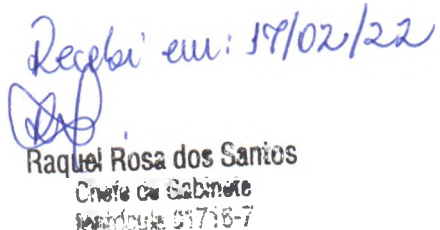 Recebi em: 17/02/22
Raquel Rosa dos Santos
Chefe de Gabinete
Matrícula 01716-7